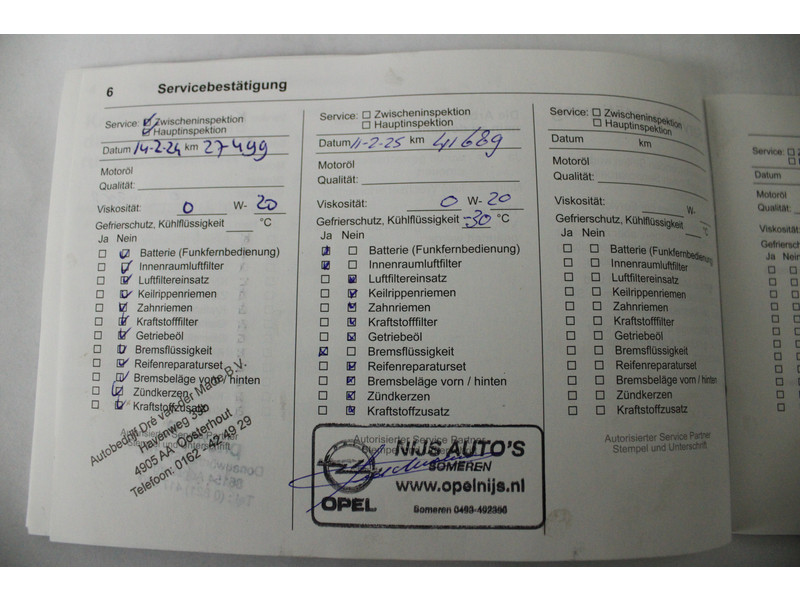 6 Servicebestätigung
Service: Zwischeninspektion
Hauptinspektion
Datum 14-2-24 km 27499
Motoröl
Qualität:
Viskosität: 0 W- 20
Gefrierschutz, Kühlflüssigkeit °C
Ja Nein
Batterie (Funkfernbedienung)
Innenraumluftfilter
Luftfiltereinsatz
Keilrippenriemen
Zahnriemen
Kraftstofffilter
Getriebeöl
Bremsflüssigkeit
Reifenreparaturset
Bremsbeläge vorn / hinten
Zündkerzen
Kraftstoffzusatz
Autorisierter Service Partner
Stempel und Unterschrift
Autobedrijf Dré van der Made B.V.
Havenweg 33b
4905 AA Oosterhout
Telefoon: 0162 - 42 49 29
Service: Zwischeninspektion
Hauptinspektion
Datum 11-2-25 km 41689
Motoröl
Qualität:
Viskosität: 0 W- 20
Gefrierschutz, Kühlflüssigkeit -30 °C
Ja Nein
Batterie (Funkfernbedienung)
Innenraumluftfilter
Luftfiltereinsatz
Keilrippenriemen
Zahnriemen
Kraftstofffilter
Getriebeöl
Bremsflüssigkeit
Reifenreparaturset
Bremsbeläge vorn / hinten
Zündkerzen
Kraftstoffzusatz
Autorisierter Service Partner
Stempel und Unterschrift
NIJS AUTO'S
SOMEREN
www.opelnijs.nl
OPEL
Someren 0493-492390
Service: Zwischeninspektion
Hauptinspektion
Datum km
Motoröl
Qualität:
Viskosität: W-
Gefrierschutz, Kühlflüssigkeit °C
Ja Nein
Batterie (Funkfernbedienung)
Innenraumluftfilter
Luftfiltereinsatz
Keilrippenriemen
Zahnriemen
Kraftstofffilter
Getriebeöl
Bremsflüssigkeit
Reifenreparaturset
Bremsbeläge vorn / hinten
Zündkerzen
Kraftstoffzusatz
Autorisierter Service Partner
Stempel und Unterschrift
Service:
Datum
Motoröl
Qualität:
Viskosität:
Ja Nein